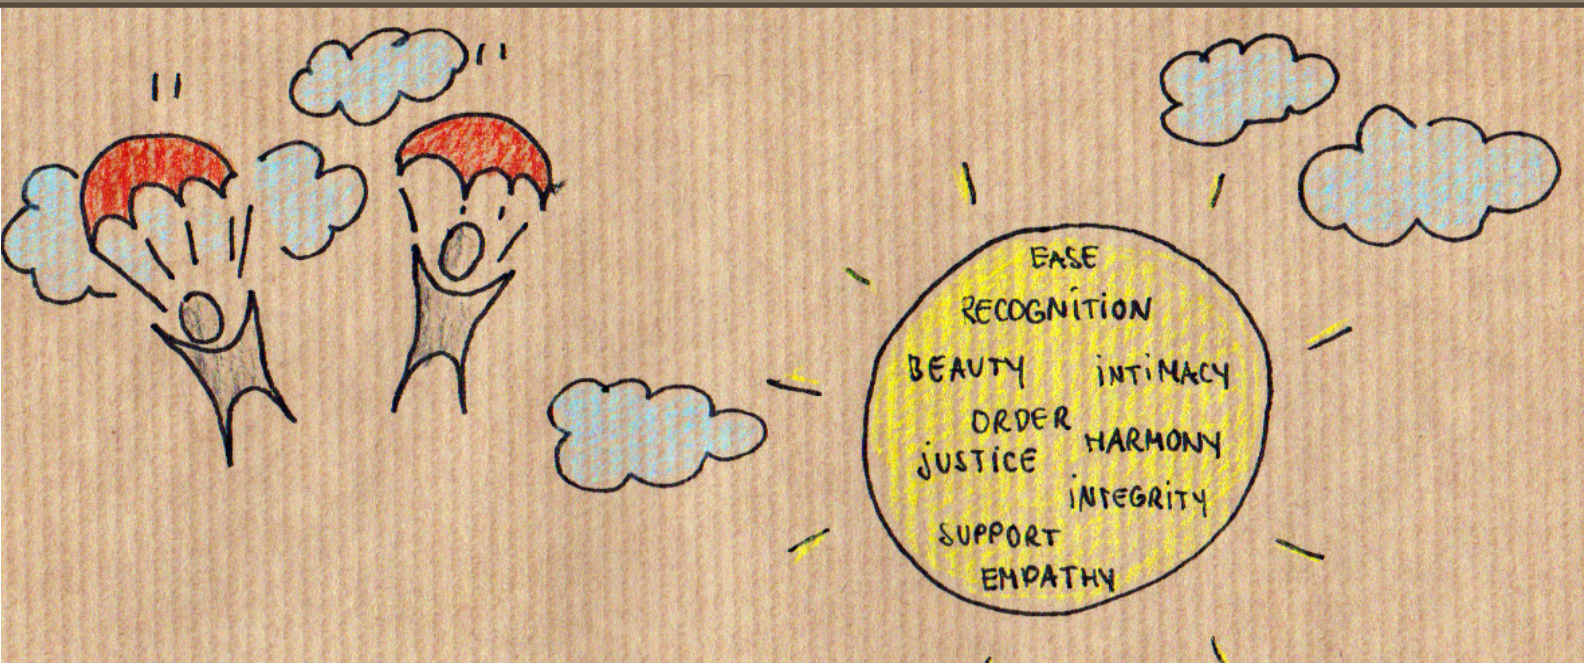 EASE
RECOGNITION
BEAUTY INTIMACY
ORDER
HARMONY
JUSTICE
INTEGRITY
SUPPORT
EMPATHY